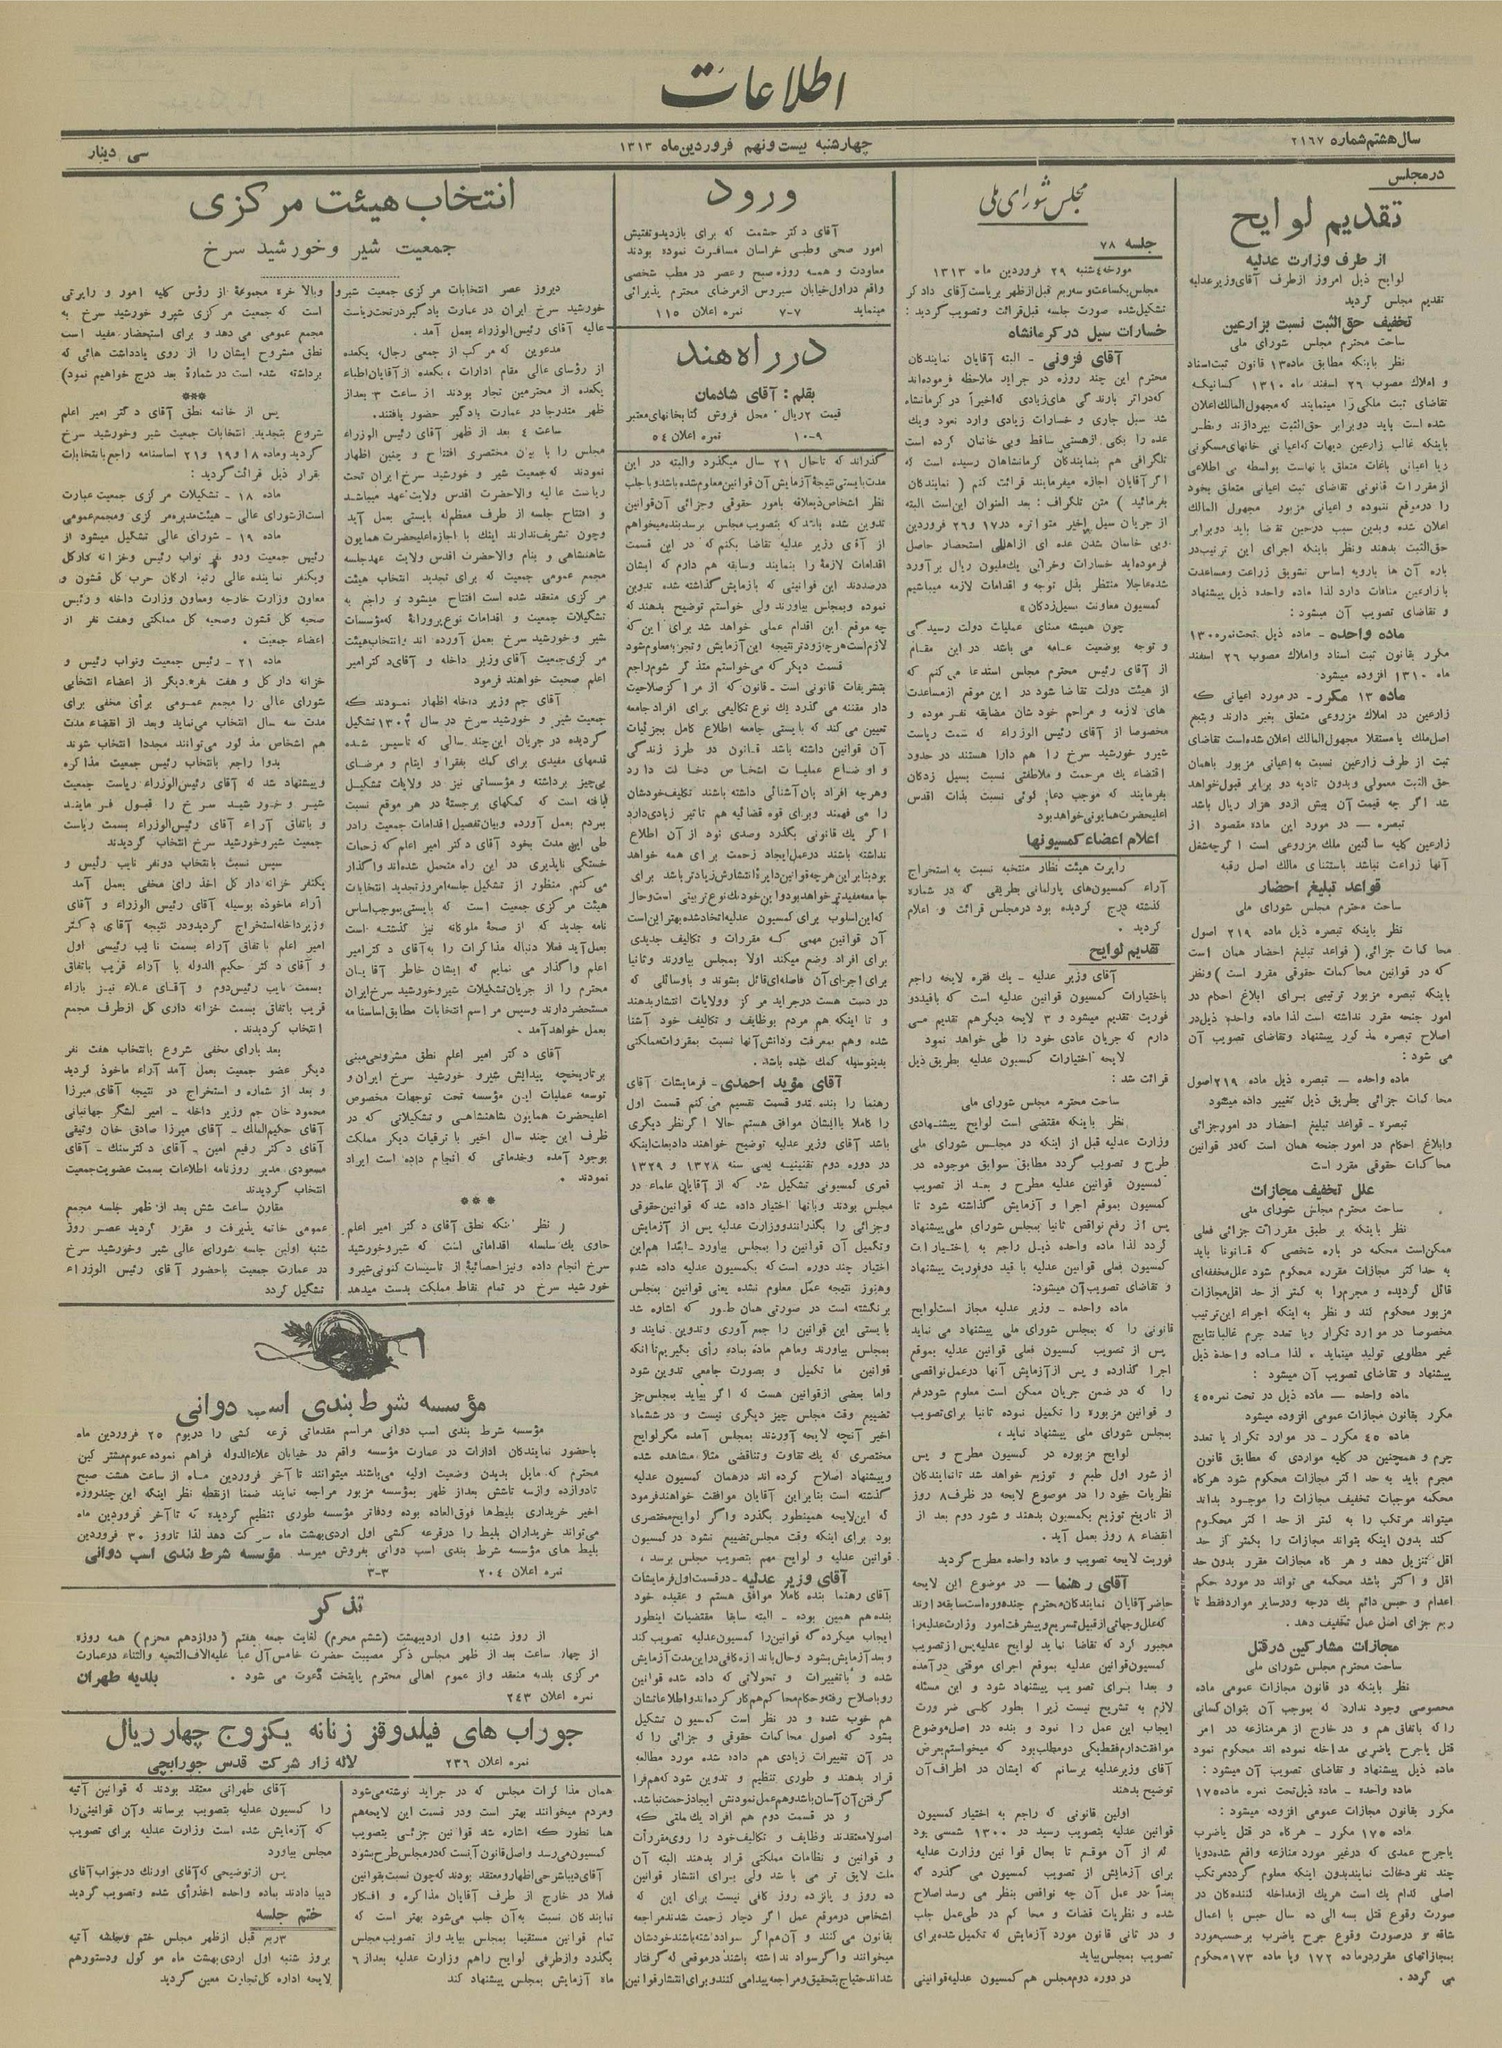 اطلاعات
سال هشتم شماره ۲۱۶۷
چهارشنبه بیست و نهم فروردین ماه ۱۳۱۳
سی دینار
در مجلس
تقدیم لوایح
از طرف وزارت عدلیه
لوایح ذیل امروز از طرف آقای وزیر عدلیه
تقدیم مجلس گردید
تخفیف حق الثبت نسبت بزارعین
ساحت محترم مجلس شورای ملی
نظر باینکه مطابق ماده ۱۳ قانون ثبت اسناد
و املاک مصوب ۲۶ اسفند ماه ۱۳۱۰ کسانیکه
تقاضای ثبت ملکی را مینمایند که مجهول المالک اعلان
شده است باید دو برابر حق الثبت بپردازند و نظر
باینکه غالب زارعین دیهات که اعیانی خانهای مسکونی
و یا اعیانی باغات متعلق بآنهاست بواسطه بی اطلاعی
از مقررات قانونی تقاضای ثبت اعیانی متعلق بخود
را در موقع ننموده و اعیانی مزبور مجهول المالک
اعلان شده و بدین سبب در حین تقاضا باید دو برابر
حق الثبت بدهند و نظر باینکه اجرای این ترتیب در
باره آن ها با رویه اساس تشویق زراعت و مساعدت
با زارعین منافات دارد لذا ماده واحده ذیل پیشنهاد
و تقاضای تصویب آن میشود :
ماده واحده – ماده ذیل تحت نمره ۱۳۰۰
مکرر بقانون ثبت اسناد و املاک مصوب ۲۶ اسفند
ماه ۱۳۱۰ افزوده میشود
ماده ۱۳ مکرر – در مورد اعیانی که
زارعین در املاک مزروعی متعلق بغیر دارند و بتبع
اصل ملک یا مستقلا مجهول المالک اعلان شده است تقاضای
ثبت از طرف زارعین نسبت به اعیانی مزبور باهمان
حق الثبت معمولی و بدون تادیه دو برابر قبول خواهد
شد اگر چه قیمت آن بیش از دو هزار ریال باشد
تبصره – در مورد این ماده مقصود از
زارعین کلیه ساکنین ملک مزروعی است اگر چه شغل
آنها زراعت نباشد باستثنای مالک اصل رقبه
قواعد تبلیغ احضار
ساحت محترم مجلس شورای ملی
نظر باینکه تبصره ذیل ماده ۲۱۹ اصول
محاکمات جزائی ( قواعد تبلیغ احضار همان است
که در قوانین محاکمات حقوقی مقرر است ) و نظر
باینکه تبصره مزبور ترتیبی برای ابلاغ احکام در
امور جنحه مقرر نداشته است لذا ماده واحده ذیل در
اصلاح تبصره مذکور پیشنهاد و تقاضای تصویب آن
می شود :
ماده واحده – تبصره ذیل ماده ۲۱۹ اصول
محاکمات جزائی بطریق ذیل تغییر داده میشود
تبصره – قواعد تبلیغ احضار در امور جزائی
و ابلاغ احکام در امور جنحه همان است که در قوانین
محاکمات حقوقی مقرر است
علل تخفیف مجازات
ساحت محترم مجلس شورای ملی
نظر باینکه بر طبق مقررات جزائی فعلی
ممکن است محکمه در باره شخصی که قانونا باید
به حداکثر مجازات مقرره محکوم شود علل مخففه ای
قائل گردیده و مجرم را به کمتر از حد اقل مجازات
مزبور محکوم کند و نظر به اینکه اجراء این ترتیب
مخصوصا در موارد تکرار و یا تعدد جرم غالبا نتایج
غیر مطلوبی تولید مینماید . لذا ماده واحده ذیل
پیشنهاد و تقاضای تصویب آن میشود :
ماده واحده – ماده ذیل در تحت نمره ۴۵
مکرر بقانون مجازات عمومی افزوده میشود
ماده ۴۵ مکرر – در موارد تکرار یا تعدد
جرم و همچنین در کلیه مواردی که مطابق قانون
مجرم باید به حد اکثر مجازات محکوم شود هرگاه
محکمه موجبات تخفیف مجازات را موجود بداند
میتواند مرتکب را به کمتر از حد اکثر محکوم
کند بدون اینکه بتواند مجازات را بکمتر از حد
اقل تنزیل دهد و هر گاه مجازات مقرر بدون حد
اقل و اکثر باشد محکمه می تواند در مورد حکم
اعدام و حبس دائم یک درجه و در سایر موارد فقط تا
ربع جزای اصل عمل تخفیف دهد .
مجازات مشارکین در قتل
ساحت محترم مجلس شورای ملی
نظر باینکه در قانون مجازات عمومی ماده
مخصوصی وجود ندارد که بموجب آن بتوان کسانی
را که باتفاق هم و در خارج از هر منازعه در امر
قتل یا جرح یا ضربی مداخله نموده اند محکوم نمود
ماده ذیل پیشنهاد و تقاضای تصویب آن میشود :
ماده واحده – ماده ذیل تحت نمره ماده ۱۷۵
مکرر بقانون مجازات عمومی افزوده میشود :
ماده ۱۷۵ مکرر – هرگاه در قتل یا ضرب
یا جرح عمدی که در غیر مورد منازعه واقع شده دو یا
چند نفر دخالت نمایند بدون اینکه معلوم گردد مرتکب
اصلی کدام یک است هریک از مداخله کنندگان در
صورت وقوع قتل بسه الی ده سال حبس با اعمال
شاقه و در صورت وقوع جرح یا ضرب بر حسب مورد
بمجازاتهای مقرر در ماده ۱۷۲ و یا ماده ۱۷۳ محکوم
می گردد .
مجلس شورای ملی
جلسه ۷۸
مورخه ۴ شنبه ۲۹ فروردین ماه ۱۳۱۳
مجلس یکساعت و سه ربع قبل از ظهر بریاست آقای دادگر
تشکیل شده صورت جلسه قبل قرائت و تصویب گردید :
خسارات سیل در کرمانشاه
آقای فزونی – البته آقایان نمایندگان
محترم این چند روزه در جراید ملاحظه فرموده اند
که در اثر بارندگی های زیادی که اخیراً در کرمانشاه
شد سیل جاری و خسارات زیادی وارد نمود و یک
عده را بکلی از هستی ساقط و بی خانمان کرده است
تلگرافی هم بنمایندگان کرمانشاهان رسیده است که
اگر آقایان اجازه میفرمایند قرائت کنم ( نمایندگان
بفرمائید ) متن تلگراف : بعد العنوان این است البته
از جریان سیل اخیر متواتره در ۱۷ و ۲۶ فروردین
و بی خانمان شدن عده ای از اهالی استحضار حاصل
فرموده اید خسارات و خرابی یک ملیون ریال برآورد
شده عاجلا منتظر بذل توجه و اقدامات لازمه میباشیم
کمسیون معاونت «سیل زدگان»
چون همیشه مبنای عملیات دولت رسیدگی
و توجه بوضعیت عامه می باشد در این مقام
از آقای رئیس محترم مجلس استدعا می کنم که
از هیئت دولت تقاضا شود در این موقع از مساعدت
های لازمه و مراحم خودشان مضایقه نفرموده و
مخصوصا از آقای رئیس الوزراء که سمت ریاست
شیر و خورشید سرخ را هم دارا هستند در حدود
اقتضاء یک مرحمت و ملاطفتی نسبت بسیل زدگان
بفرمایند که موجب دعا گوئی نسبت بذات اقدس
اعلیحضرت همایونی خواهد بود
اعلام اعضاء کمسیونها
راپرت هیئت نظار منتخبه نسبت به استخراج
آراء کمسیون های پارلمانی بطریقی که در شماره
گذشته درج گردیده بود در مجلس قرائت و اعلام
گردید .
تقدیم لوایح
آقای وزیر عدلیه – یک فقره لایحه راجع
باختیارات کمسیون قوانین عدلیه است که با قید دو
فوریت تقدیم میشود و ۳ لایحه دیگر هم تقدیم می
دارم که جریان عادی خود را طی خواهد نمود
لایحه اختیارات کمسیون عدلیه بطریق ذیل
قرائت شد :
ساحت محترم مجلس شورای ملی
نظر باینکه مقتضی است لوایح پیشنهادی
وزارت عدلیه قبل از اینکه در مجلس شورای ملی
طرح و تصویب گردد مطابق سوابق موجوده در
کمسیون قوانین عدلیه مطرح و بعد از تصویب
کمسیون بموقع اجرا و آزمایش گذاشته شود تا
پس از رفع نواقص ثانیا بمجلس شورای ملی پیشنهاد
گردد لذا ماده واحده ذیل راجع به اختیارات
کمسیون فعلی قوانین عدلیه با قید دو فوریت پیشنهاد
و تقاضای تصویب آن میشود:
ماده واحده – وزیر عدلیه مجاز است لوایح
قانونی را که بمجلس شورای ملی پیشنهاد می نماید
پس از تصویب کمسیون فعلی قوانین عدلیه بموقع
اجرا گذارده و پس از آزمایش آنها در عمل نواقصی
را که در ضمن جریان ممکن است معلوم شود رفع
و قوانین مزبوره را تکمیل نموده ثانیا برای تصویب
بمجلس شورای ملی پیشنهاد نماید ،
لوایح مزبوره در کمسیون مطرح و پس
از شور اول طبع و توزیع خواهد شد تا نمایندگان
نظریات خود را در موضوع لایحه در ظرف ۸ روز
از تاریخ توزیع بکمسیون بدهند و شور دوم بعد از
انقضاء ۸ روز بعمل آید .
فوریت لایحه تصویب و ماده واحده مطرح گردید
آقای رهنما – در موضوع این لایحه
حاضر آقایان نمایندگان محترم چند دوره است سابقه دارند
که علل و جهاتی از قبیل تسریع و پیشرفت امور وزارت عدلیه را
مجبور کرد که تقاضا نماید لوایح عدلیه پس از تصویب
کمسیون قوانین عدلیه بموقع اجرای موقتی در آمده
و بعدا برای تصویب پیشنهاد شود و این مسئله
لازم به تشریح نیست زیرا بطور کلی ضرورت
ایجاب این عمل را نمود و بنده در اصل موضوع
موافقت دارم فقط یکی دو مطلب بود که میخواستم بعرض
آقای وزیر عدلیه برسانم که ایشان در اطراف آن
توضیح بدهند
اولین قانونی که راجع به اختیار کمسیون
قوانین عدلیه بتصویب رسید در ۱۳۰۰ شمسی بود
که از آن موقع تا بحال قوانین وزارت عدلیه
برای آزمایش از تصویب کمسیون می گذرد که
بعداً در عمل آن چه نواقص بنظر می رسد اصلاح
شده و نظریات قضات و محاکم در طی عمل جلب
و در ثانی قانون مورد آزمایش که تکمیل شده برای
تصویب بمجلس بیاید
در دوره دوم مجلس هم کمسیون عدلیه قوانینی
ورود
آقای دکتر حشمت که برای بازدید و تفتیش
امور صحی و طبی خراسان مسافرت نموده بودند
معاودت و همه روزه صبح و عصر در مطب شخصی
واقع در اول خیابان سیروس از مرضای محترم پذیرائی
مینماید ۷–۷ نمره اعلان ۱۱۵
در راه هند
بقلم : آقای شادمان
قیمت ۲ ریال ٠ محل فروش کتابخانهای معتبر
۹–۱۰ نمره اعلان ۵۴
گذراند که تا حال ۲۱ سال میگذرد و البته در این
مدت بایستی نتیجه آزمایش آن قوانین معلوم شده باشد و با جلب
نظر اشخاص ذیعلاقه بامور حقوقی و جزائی آن قوانین
تدوین شده باشد که بتصویب مجلس برسد بنده میخواهم
از آقای وزیر عدلیه تقاضا بکنم که در این قسمت
اقدامات لازمه را بنمایند و سابقه هم دارم که ایشان
در صددند این قوانینی که بآزمایش گذاشته شده تدوین
نموده و بمجلس بیاورند ولی خواستم توضیح بدهند که
چه موقع این اقدام عملی خواهد شد برای این که
لازم است هر چه زودتر نتیجه این آزمایش و تجربه معلوم شود
قسمت دیگر که میخواستم متذکر شوم راجع
بتشریفات قانونی است – قانون که از مراکز صلاحیت
دار مقننه می گذرد یک نوع تکالیفی برای افراد جامعه
تعیین می کند که بایستی جامعه اطلاع کامل بجزئیات
آن قوانین داشته باشد قانون در طرز زندگی
و اوضاع عملیات اشخاص دخالت دارد
و هر چه افراد بآن آشنائی داشته باشند تکلیف خودشان
را می فهمند و برای قوه قضائیه هم تاثیر زیادی دارد
اگر یک قانونی بگذرد و صدی نود از آن اطلاع
نداشته باشند در عمل ایجاد زحمت برای همه خواهد
بود بنابر این هر چه قوانین دایره انتشارش زیادتر باشد برای
جامعه مفیدتر خواهد بود و این خود یک نوع تربیتی است و حال
که این اسلوب برای کمسیون عدلیه اتخاذ شده بهتر این است
آن قوانین مهمی که مقررات و تکالیف جدیدی
برای افراد وضع میکند اولا بمجلس بیاورند و ثانیا
برای اجرای آن فاصله ای قائل بشوند و با وسائلی که
در دست هست در جراید مرکز و ولایات انتشار بدهند
و تا اینکه هم مردم بوظایف و تکالیف خود آشنا
شده و هم بمعرفت و دانش آنها نسبت بمقررات مملکتی
بدینوسیله کمک شده باشد.
آقای مؤید احمدی – فرمایشات آقای
رهنما را بنده بدو قسمت تقسیم می کنم قسمت اول
را کاملا با ایشان موافق هستم حالا اگر نظر دیگری
باشد آقای وزیر عدلیه توضیح خواهند داد بعلت اینکه
در دوره دوم تقنینیه یعنی سنه ۱۳۲۸ و ۱۳۲۹
قمری کمسیونی تشکیل شد که از آقایان علماء در
مجلس بودند و بآنها اختیار داده شد که قوانین حقوقی
و جزائی را بگذرانند و وزارت عدلیه پس از آزمایش
و تکمیل آن قوانین را بمجلس بیاورد – ابتدا هم این
اختیار چند دوره است که بکمسیون عدلیه داده شده
و هنوز نتیجه عمل معلوم نشده یعنی قوانین بمجلس
برنگشته است در صورتی همان طور که اشاره شد
بایستی این قوانین را جمع آوری و تدوین نمایند و
بمجلس بیاورند و ما هم ماده بماده رأی بگیریم تا آنکه
قوانین ما تکمیل و بصورت جامعی تدوین شود
و اما بعضی از قوانین هست که اگر بیاید بمجلس جز
تضییع وقت مجلس چیز دیگری نیست و در ششماه
اخیر آنچه لایحه آوردند بمجلس آمده مگر لوایح
مختصری که یک تفاوت و تناقضی مثلا مشاهده شده
و پیشنهاد اصلاح کرده اند در همان کمسیون عدلیه
گذشته است بنابر این آقایان موافقت خواهند فرمود
که این لایحه همینطور بگذرد و اگر لوایح مختصری
بود برای اینکه وقت مجلس تضییع نشود در کمسیون
قوانین عدلیه و لوایح مهم بتصویب مجلس برسد ،
آقای وزیر عدلیه – در قسمت اول فرمایشات
آقای رهنما بنده کاملا موافق هستم و عقیده خود
بنده هم همین بوده – البته سابقا مقتضیات اینطور
ایجاب میکرده که قوانین را کمسیون عدلیه تصویب کند
و بعد آزمایش بشود و حال باندازه کافی در این مدت آزمایش
شده و با تغییرات و تحولاتی که داده شده قوانین
رو باصلاح رفته و حکام محاکم هم کار کرده اند و اطلاعاتشان
هم خوب شده و در نظر است کمسیون تشکیل
بشود که اصول محاکمات حقوقی و جزائی را که
در آن تغییرات زیادی هم داده شده مورد مطالعه
قرار بدهند و طوری تنظیم و تدوین شود که هم فرا
گرفتن آن آسان باشد و هم عمل نمودنش ایجاد زحمت نباشد.
و در قسمت دوم هم افراد یک ملتی که
اصولا معتقدند وظایف و تکالیف خود را روی مقررات
و قوانین و نظامات مملکتی قرار بدهند البته آن
ملت لایق تر می باشد ولی برای انتشار قوانین
ده روز و پانزده روز کافی نیست برای این که
اشخاص در موقع عمل اگر دچار زحمت شدند مراجعه
بقانون می کنند و آن هم اگر سواد داشته باشند خودشان
میخوانند و اگر سواد نداشته باشند در موقعی که گرفتار
شده اند محتاج بتحقیق و مراجعه پیدا می کنند و برای انتشار قوانین
انتخاب هیئت مرکزی
جمعیت شیر و خورشید سرخ
دیروز عصر انتخابات مرکزی جمعیت شیر و
خورشید سرخ ایران در عمارت یادگیر در تحت ریاست
عالیه آقای رئیس الوزراء بعمل آمد .
مدعوین که مرکب از جمعی رجال، یکعده
از رؤسای عالی مقام ادارات ، یکعده از آقایان اطباء
یکعده از محترمین تجار بودند از ساعت ۳ بعد از
ظهر متدرجا در عمارت یادگیر حضور یافتند.
ساعت ۴ بعد از ظهر آقای رئیس الوزراء
مجلس را با بیان مختصری افتتاح و چنین اظهار
نمودند که جمعیت شیر و خورشید سرخ ایران تحت
ریاست عالیه والاحضرت اقدس ولایت عهد میباشد
و افتتاح جلسه از طرف معظم له بایستی بعمل آید
و چون تشریف ندارند اینک با اجازه اعلیحضرت همایون
شاهنشاهی و بنام والاحضرت اقدس ولایت عهد جلسه
مجمع عمومی جمعیت که برای تجدید انتخاب هیئت
مرکزی منعقد شده است افتتاح میشود و راجع به
تشکیلات جمعیت و اقدامات نوع پرورانه که مؤسسات
شیر و خورشید سرخ بعمل آورده اند و انتخاب هیئت
مرکزی جمعیت آقای وزیر داخله و آقای دکتر امیر
اعلم صحبت خواهند فرمود
آقای جم وزیر داخله اظهار نمودند که
جمعیت شیر و خورشید سرخ در سال ۱۳۰۲ تشکیل
گردیده در جریان این چند سالی که تاسیس شده
قدمهای مفیدی برای کمک بفقرا و ایتام و مرضای
بی چیز برداشته و مؤسساتی نیز در ولایات تشکیل
یافته است که کمکهای برجسته در هر موقع نسبت
بمردم بعمل آورده و بیان تفصیل اقدامات جمعیت را در
طی این مدت بخود آقای دکتر امیر اعلم که زحمات
خستگی ناپذیری در این راه متحمل شده اند واگذار
می کنم. منظور از تشکیل جلسه امروز تجدید انتخابات
هیئت مرکزی جمعیت است که بایستی بموجب اساس
نامه جدید که از صحه ملوکانه نیز گذشته است
بعمل آید فعلا دنباله مذاکرات را به آقای دکتر امیر
اعلم واگذار می نمایم که ایشان خاطر آقایان
محترم را از جریان تشکیلات شیر و خورشید سرخ ایران
مستحضر دارند و سپس مراسم انتخابات مطابق اساسنامه
بعمل خواهد آمد .
آقای دکتر امیر اعلم نطق مشروحی مبنی
بر تاریخچه پیدایش شیر و خورشید سرخ ایران و
توسعه عملیات این مؤسسه تحت توجهات مخصوص
اعلیحضرت همایون شاهنشاهی و تشکیلاتی که در
ظرف این چند سال اخیر با ترقیات دیگر مملکت
بوجود آمده و خدماتی که انجام داده است ایراد
نمودند .
***
نظر باینکه نطق آقای دکتر امیر اعلم
حاوی یک سلسله اقداماتی است که شیر و خورشید
سرخ انجام داده و نیز احصائیه از تاسیسات کنونی شیر و
خورشید سرخ در تمام نقاط مملکت بدست میدهد
و بالاخره مجموعه از رؤس کلیه امور و راپرتی
است که جمعیت مرکزی شیر و خورشید سرخ به
مجمع عمومی می دهد و برای استحضار مفید است
نطق مشروح ایشان را از روی یادداشت هائی که
برداشته شده است در شماره بعد درج خواهیم نمود)
***
پس از خاتمه نطق آقای دکتر امیر اعلم
شروع بتجدید انتخابات جمعیت شیر و خورشید سرخ
گردید و ماده ۱۸ و ۱۹ و ۲۱ اساسنامه راجع بانتخابات
بقرار ذیل قرائت گردید :
ماده ۱۸ – تشکیلات مرکزی جمعیت عبارت
است از شورای عالی – هیئت مدیره مرکزی و مجمع عمومی
ماده ۱۹ – شورای عالی تشکیل میشود از
رئیس جمعیت و دو نفر نواب رئیس و خزانه دار کل
و یکنفر نماینده عالی رتبه ارکان حرب کل قشون و
معاون وزارت خارجه و معاون وزارت داخله و رئیس
صحیه کل قشون و صحیه کل مملکتی و هفت نفر از
اعضاء جمعیت .
ماده ۲۱ – رئیس جمعیت و نواب رئیس و
خزانه دار کل و هفت نفر دیگر از اعضاء انتخابی
شورای عالی را مجمع عمومی برأی مخفی برای
مدت سه سال انتخاب می نماید و بعد از انقضاء مدت
هم اشخاص مذکور می توانند مجددا انتخاب شوند
بدوا راجع بانتخاب رئیس جمعیت مذاکره
و پیشنهاد شد که آقای رئیس الوزراء ریاست جمعیت
شیر و خورشید سرخ را قبول فرمایند
و باتفاق آراء آقای رئیس الوزراء بسمت ریاست
جمعیت شیر و خورشید سرخ انتخاب گردیدند
سپس نسبت بانتخاب دو نفر نایب رئیس و
یکنفر خزانه دار کل اخذ رای مخفی بعمل آمد
آراء ماخوذه بوسیله آقای رئیس الوزراء و آقای
وزیر داخله استخراج گردید و در نتیجه آقای دکتر
امیر اعلم باتفاق آراء بسمت نایب رئیسی اول
و آقای دکتر حکیم الدوله با آراء قریب باتفاق
بسمت نایب رئیس دوم و آقای علاء نیز باراء
قریب باتفاق بسمت خزانه داری کل از طرف مجمع
انتخاب گردیدند .
بعد بارای مخفی شروع بانتخاب هفت نفر
دیگر عضو جمعیت بعمل آمد آراء ماخوذ گردید
و بعد از شماره و استخراج در نتیجه آقای میرزا
محمود خان جم وزیر داخله – امیر لشگر جهانبانی
آقای حکیم الملک – آقای میرزا صادق خان وثیقی
آقای دکتر رفیع امین – آقای دکتر سنگ – آقای
مسعودی مدیر روزنامه اطلاعات بسمت عضویت جمعیت
انتخاب گردیدند
مقارن ساعت شش بعد از ظهر جلسه مجمع
عمومی خاتمه پذیرفت و مقرر گردید عصر روز
شنبه اولین جلسه شورای عالی شیر و خورشید سرخ
در عمارت جمعیت با حضور آقای رئیس الوزراء
تشکیل گردد
مؤسسه شرط بندی اسب دوانی
مؤسسه شرط بندی اسب دوانی مراسم مقدماتی قرعه کشی را در یوم ۲۵ فروردین ماه
باحضور نمایندگان ادارات در عمارت مؤسسه واقع در خیابان علاءالدوله فراهم نموده عموم مشترکین
محترم که مایل بدیدن وضعیت اولیه می باشند میتوانند تا آخر فروردین ماه از ساعت هشت صبح
تا دوازده و از سه تا شش بعد از ظهر بمؤسسه مزبور مراجعه نمایند ضمنا از نقطه نظر اینکه این چند روزه
اخیر خریداری بلیط ها فوق العاده بوده و دفاتر مؤسسه طوری تنظیم گردیده که تا آخر فروردین ماه
می تواند خریداران بلیط را در قرعه کشی اول اردیبهشت ماه شرکت دهد لذا تا روز ۳۰ فروردین
بلیط های مؤسسه شرط بندی اسب دوانی بفروش میرسد مؤسسه شرط بندی اسب دوانی
نمره اعلان ۲۰۴ ۳–۳
تذکر
از روز شنبه اول اردیبهشت (ششم محرم) لغایت جمعه هفتم (دوازدهم محرم) همه روزه
از چهار ساعت بعد از ظهر مجلس ذکر مصیبت حضرت خامس آل عبا علیه الاف التحیه والثناء در عمارت
مرکزی بلدیه منعقد و از عموم اهالی محترم پایتخت دعوت می شود . بلدیه طهران
نمره اعلان ۲۴۳
جوراب های فیلدوقز زنانه یکزوج چهار ریال
نمره اعلان ۲۳۶ لاله زار شرکت قدس جورابچی
همان مذاکرات مجلس که در جراید نوشته می شود
و مردم میخوانند بهتر است و در قسمت این لایحه هم
همانطور که اشاره شد قوانین جزئی بتصویب
کمسیون می رسد و اصل قانون آنست که در مجلس طرح بشود
آقای دیبا شرحی اظهار و معتقد بودند که چون نسبت بقوانین
فعلا در خارج از طرف آقایان مذاکره و افکار
نمایندگان نسبت به آن جلب می شود بهتر است که
تمام قوانین مستقیما بمجلس بیاید و از تصویب مجلس
بگذرد و از طرفی لوایح را هم وزارت عدلیه بعد از ۶
ماه آزمایش بمجلس پیشنهاد کند
آقای طهرانی معتقد بودند که قوانین آتیه
را کمسیون عدلیه بتصویب برساند و آن قوانینی را
که آزمایش شده است وزارت عدلیه برای تصویب
مجلس بیاورد
پس از توضیحی که آقای اورنگ در جواب آقای
دیبا دادند بماده واحده اخذ رأی شده و تصویب گردید
ختم جلسه
۳ ربع قبل از ظهر مجلس ختم و جلسه آتیه
بروز شنبه اول اردی بهشت ماه موکول و دستور هم
لایحه اداره کل تجارت معین گردید